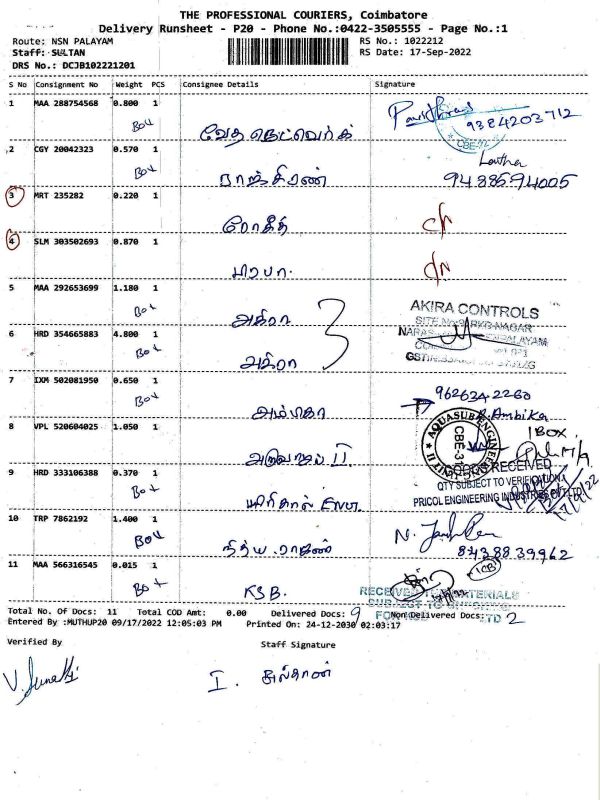 THE PROFESSIONAL COURIERS, Coimbatore
Delivery Runsheet - P20 - Phone No.:0422-3505555 - Page No.:1
Route: NSN PALAYAM
RS No.: 1022212
Staff: SULTAN
RS Date: 17-Sep-2022
DRS No.: DCJB102221201
S No Consignment No Weight PCS Consignee Details Signature
1 MAA 288754568 0.800 1
Box வேத நெட்வொர்க் 9384203712
CBE-42
2 CGY 20042323 0.570 1
Box ராஜ்கிரண் Lautha
9488594005
3 MRT 235282 0.220 1
ரோகித்
4 SLM 303502693 0.870 1
பிரபா.
5 MAA 292653699 1.180 1
Box அகிரா
AKIRA CONTROLS
6 HRD 354665883 4.800 1
Box அகிரா
7 IXM 502081950 0.650 1
Box அம்பிகா
9626342260
R. Ambika
8 VPL 520604025 1.050 1
அகுவாசப் II
1 BOX.
AQUASUB ENGINEERING
UNIT II
CBE-3
GOODS RECEIVED
9 HRD 333106388 0.370 1
Box
QTY SUBJECT TO VERIFICATION
PRICOL ENGINEERING INDUSTRIES PVT LTD
10 TRP 7862192 1.400 1
Box நித்ய ராஜன்
8438839962
11 MAA 566316545 0.015 1
Box KSB.
RECEIVED MATERIALS
Total No. Of Docs: 11 Total COD Amt: 0.00 Delivered Docs: 9 Non Delivered Docs: 2
Entered By :MUTHUP20 09/17/2022 12:05:03 PM Printed On: 24-12-2030 02:03:17
Verified By
Staff Signature
I. சுல்தான்